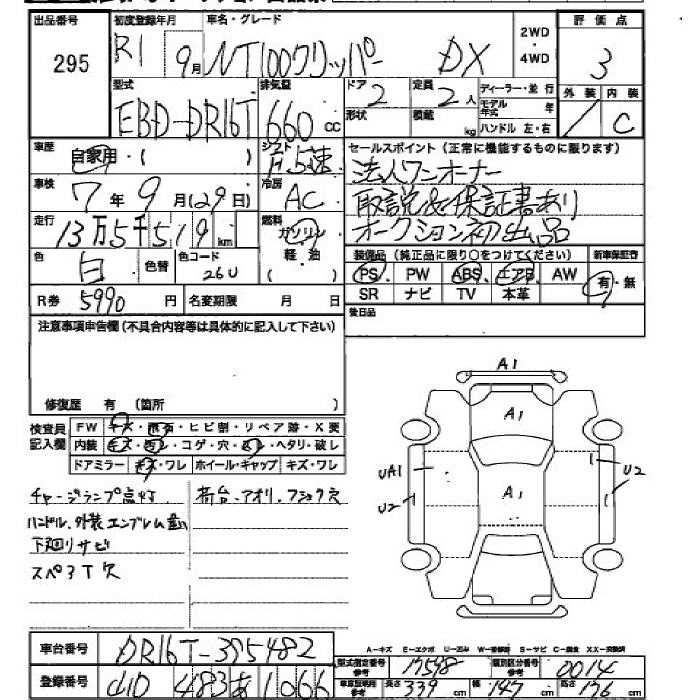 出品番号 初度登録年月 車名・グレード 2WD・4WD 評価点
295 R1 9月 NT100クリッパー DX 3
型式 排気量 ドア 定員 ディーラー・並行 外装 内装
EBD-DR16T 660cc 2 2人 モデル年式 年 C
形状 積載 kg ハンドル 左・右
車歴 自家用・( ) シフト F5速
セールスポイント(正常に機能するものに限ります)
車検 7年9月(29日) 冷房 AC
法人ワンオーナー
取説&保証書あり
オークション初出品
走行 13万5千519km 燃料 ガソリン 軽・油 ( )
色 白 色替 色コード 26U
装備品(純正品に限り○をつけてください) 新車保証書
PS. PW ABS. エアB AW 有・無
SR ナビ TV 本革
R券 5990円 名変期限 月 日
後日品
注意事項申告欄(不具合内容等は具体的に記入して下さい)
修復歴 有 (箇所 )
検査員記入欄
FW キズ・飛石・ヒビ割・リペア跡・X要
内装 キズ・汚レ・コゲ・穴・凹・ヘタリ・破レ
ドアミラー キズ・ワレ ホイール・キャップ キズ・ワレ
A1
A1
A1
UA1
U2
U2
チャージランプ点灯 荷台、アオリ、フック穴
ハンドル、外装エンブレム
下廻りサビ
スペ3T欠
車台番号 DR16T-395482
登録番号 483あ1066
A-キズ E-エクボ U-凹み W-補修跡 S-サビ C-腐食 XX-交換済
型式指定番号 17548 類別区分番号 0014
長さ 339cm 幅 147cm 高さ 176cm